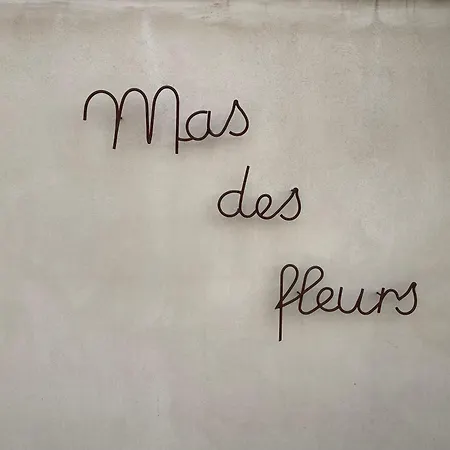 Mas
des
fleurs